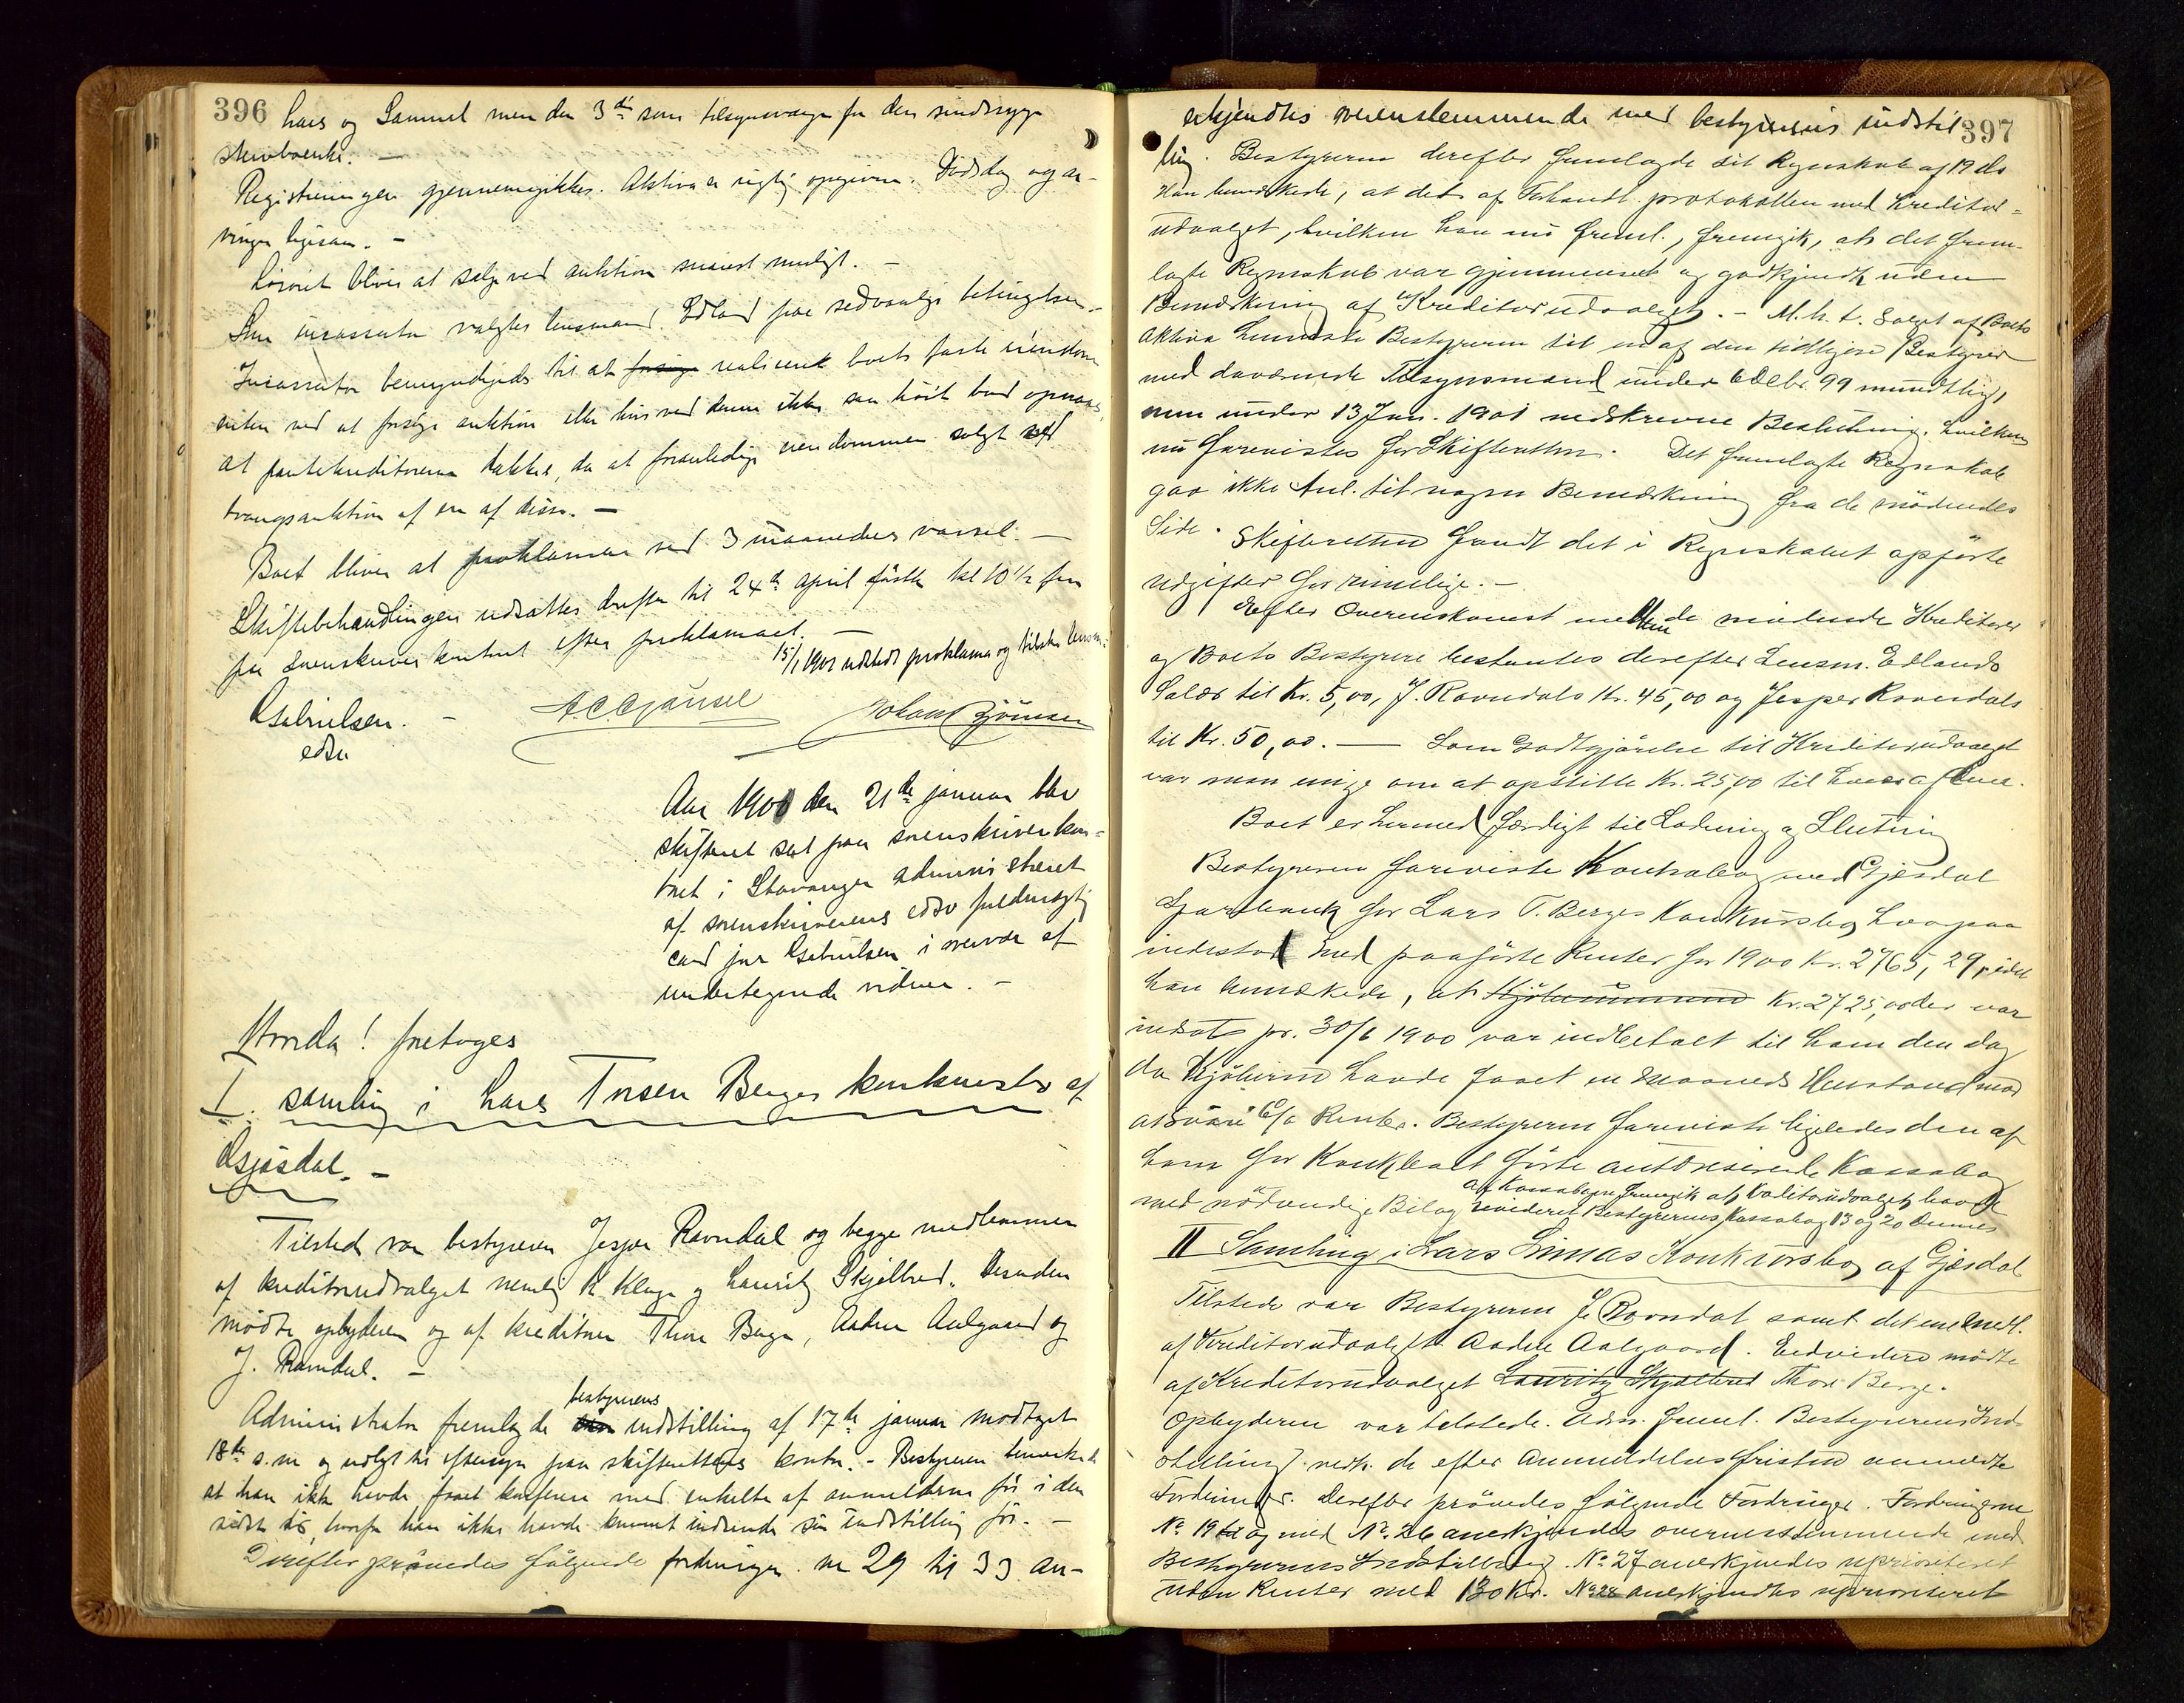 396
Lars og Samuel men den 3die som tilsynsværge for den sindssyge
Registreringen gjennemgikkes. Aktiva er rigtig opgiven. Dødsdag og ar-
vinger ligesaa. -
Løsøret bliver at sælge ved auktion snarest muligt. -
Som incassator valgtes lensmand Edland paa sedvanlige betingelser. -
Incassator bemyndigedes til at realisere boets faste eiendom
enten ved at forsøge auktion eller hvis ved denne ikke saa høit bud opnaaes,
at pantekreditorerne dækkes, da at foranledige eiendommen solgt ved
tvangsauktion af en af disse. -
Boet bliver at proklamere med 3 maaneders varsel. -
Skiftebehandlingen udsættes derefter til 24de april først kl 10 1/2 fm
paa Sorenskriverkontoret efter proklamaet. -
15/1 1901 udstedt proklama og tilsendt lensm.
Gabrielsen. -
edsv
Johan Bjørnsen
Aar 1901 den 21de januar blev
skifteret sat paa sorenskriverkon-
toret i Stavanger administreret
af sorenskriverens edsv fuldmægtig
cand jur Gabrielsen i overvær af
undertegnede vidner. -
Hvorda! foretoges
I. samling i Lars Torsen Berges konkursbo af
Gjæsdal. -
Tilstede var bestyreren Jesper Ravndal og begge medlemmer
af kreditorudvalget nemlig K. Kluge og Lauritz Skjølbred. Desuden
mødte opbyderen og af kreditorer Thore Berge, Aadne Aalgaard og
J. Ravndal. -
bestyrerens
Administrator fremlagde indstilling af 17de januar modtaget
18de s.m og udlagt til eftersyn paa skifterettens kontor. - Bestyreren bemærkede
at han ikke havde faaet konferere med enkelte af anmelderne før i den
sidste tid, hvorfor han ikke havde kunnet indsende sin indstilling før. -
Derefter prøvedes følgende fordringer. no 29 til 33 an-
397
erkjendtes overensstemmende med bestyrerens indstil
ling. Bestyreren derefter fremlagde sit Regnskab af 19 ds
Han bemærkede, at det af Forhandl. protokollen med Kreditor=
udvalget, hvilken han nu freml., fremgik, at det frem-
lagte Regnskab var gjennemseet og godkjendt uden
Bemærkning af Kreditorudvalget. - M.h.t. Salget af Boets
Aktiva henviste Bestyreren til en af den tidligere Bestyrer
med daværende Tilsynsmænd under 6 Decbr. 99 mundtlig,
men under 13 Jan. 1901 nedskrevne Beslutning, hvilken
nu forevistes for Skifteretten. Det fremlagte Regnskab
gav ikke Anl. til nogen Bemærkning fra de mødendes
Side. Skifteretten fandt det i Regnskabet opførte
udgifter for rimelige. -
Efter Overenskomst mellem de mødende Kreditorer
og Boets Bestyrere bestemtes derefter Lensm. Edlands
Salær til Kr. 5,00, J. Ravndals Kr. 45,00 og Jesper Ravndals
til Kr. 50,00. - Som Godtgjørelse til Kreditorudvalget
var man enige om at opstille Kr. 25,00 til hver af dem.
Boet er hermed færdigt til Lodning og Slutning
Bestyreren foreviste Kontrabog med Gjæsdal
Sparebank for Lars T. Berges Konkursbo, hvorpaa
indestod med paaførte Renter for 1900 Kr. 2765,29, idet
han bemærkede, at Kr. 2725,00 der var
indsat pr. 30/6 1900 var indbetalt til ham den dag
da Kjøberen havde faaet en Maaneds Henstand mod
at svare 6% Renter. Bestyreren foreviste ligeledes den af
ham for Konk.boet førte autoriserede Kassabog
med nødvendige Bilag
af Kassabogen fremgik at Kreditorudvalget havde
revideret Bestyrerens Kassabog 13 og 20 Dennes
II Samling i Lars Limas Konkursbo, af Gjæsdal
Tilstede var Bestyreren J. Ravndal samt det ene Medl.
af Kreditorudvalget Aadne Aalgaard. Endvidere mødte
af Kreditorudvalget Lauritz Skjølbred Thore Berge.
Opbyderen var tilstede. Adm. freml. Bestyrerens Ind-
stilling vedk. de efter Anmeldelsesfristen anmeldte
Fordringer. Derefter prøvedes følgende Fordringer. Fordringerne
No 19 til og med No. 26 anerkjendes overensstemmende med
Bestyrerens Indstilling. No 27 anerkjendes uprioriteret
uden Renter med 130 Kr. No 28 anerkjendtes uprioriteret